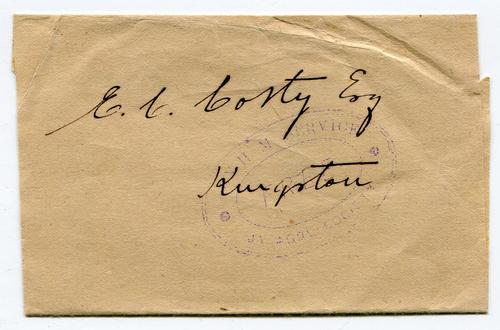 E. C. Costy Esq
Kingston
H M SERVICE